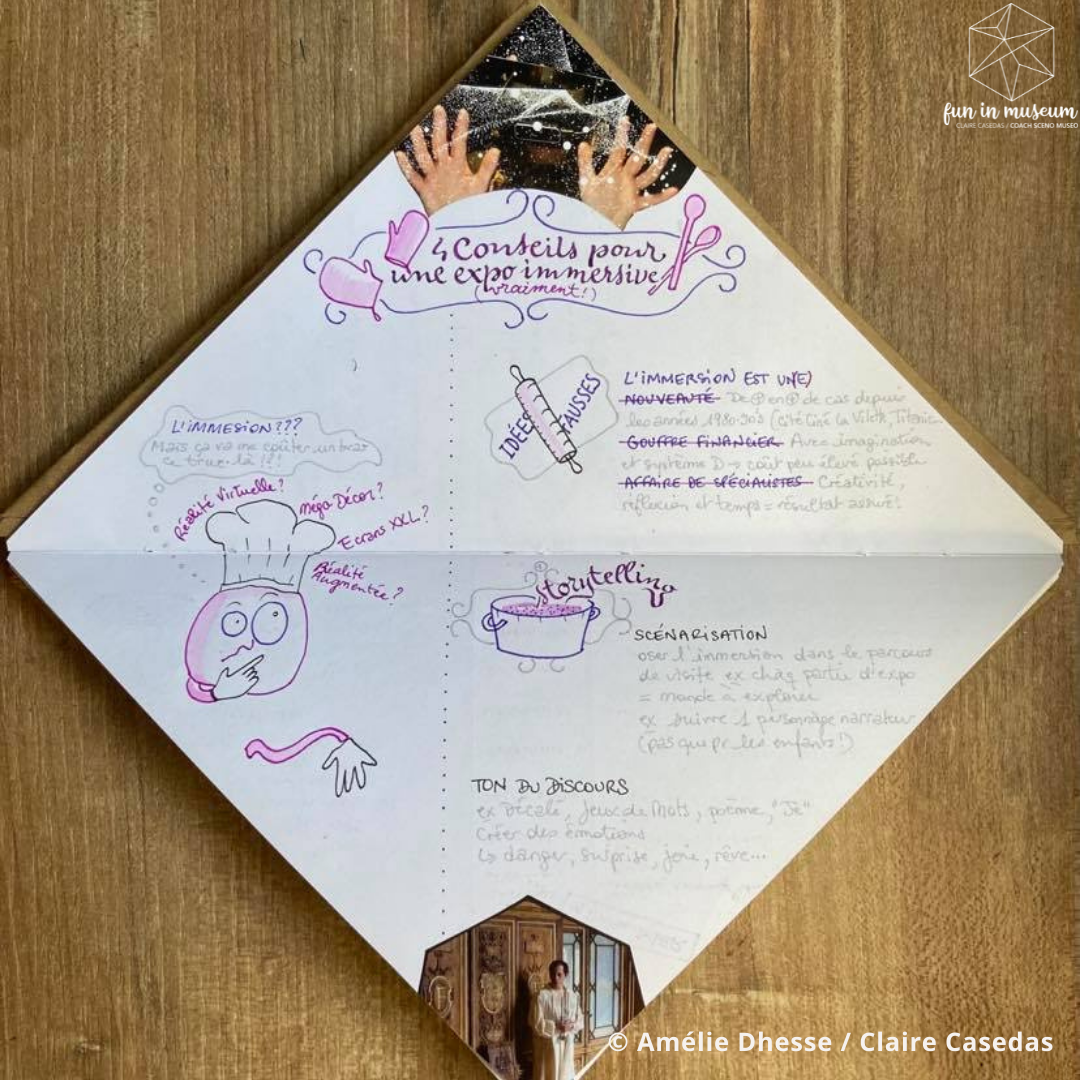 fun in museum
CLAIRE CASEDAS / COACH SCENO MUSEO
4 Conseils pour
une expo immersive
(vraiment!)
L'IMMESION???
Mais ça va me coûter un bras
ce truc là !!!
Réalité Virtuelle?
Méga Décor?
Ecrans XXL?
Réalité
Augmentée?
IDÉES FAUSSES
L'IMMERSION EST UN(E)
NOUVEAUTÉ De en de cas depuis
les années 1980-90's (Cité Ciné la Villette, Titanic
GOUFFRE FINANCIER Avec imagination
et système D → coût peu élevé possible
AFFAIRE DE SPÉCIALISTES Créativité,
réflexion et temps = résultat assuré!
① Storytelling
SCÉNARISATION
oser l'immersion dans le parcours
de visite ex chaq partie d'expo
= monde à explorer
ex suivre 1 personnage narrateur
(pas que pr les enfants!)
TON DU DISCOURS
ex Décalé, Jeux de Mots, poème, "Je"
Créer des émotions
↳ danger, surprise, joie, rêve...
© Amélie Dhesse / Claire Casedas